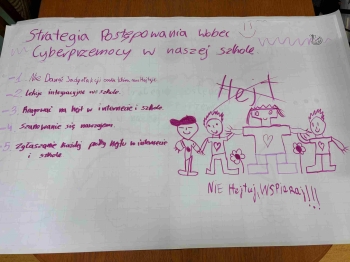 Strategia Postępowania wobec
Cyberprzemocy w naszej szkole
1 Nie Dawać Satysfakcji osobie która nas Hejtuje.
2 Lekcje integracyjne w szkole
3 Reagować na hejt w internecie i szkole
4 Szanowanie się nawzajem
5 Zgłaszanie każdej próby hejtu w internecie
i szkole
Hejt
NIE Hejtuj, WSPIERAJ!!!